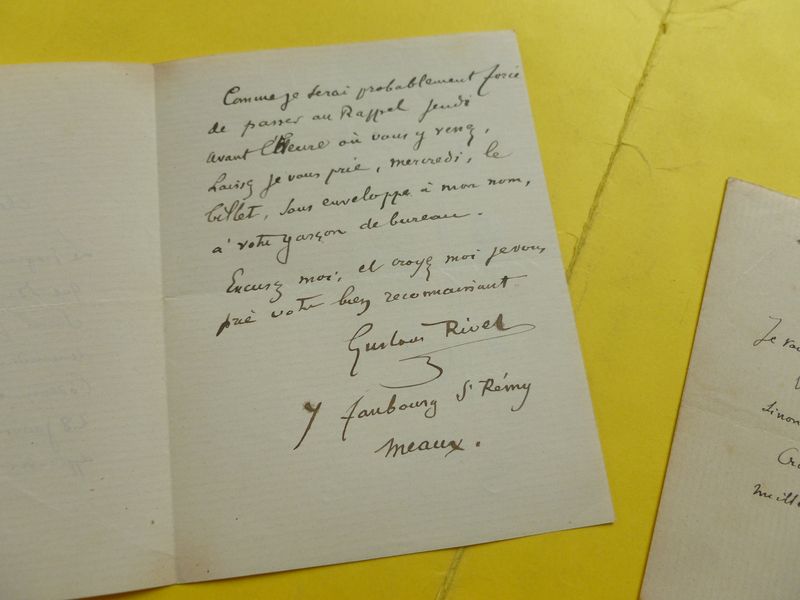 Comme je serai probablement forcé
de passer au Rappel Jeudi
avant l'heure où vous y venez,
Laissez je vous prie, mercredi, le
billet, sous enveloppe à mon nom,
à votre garçon de bureau.
Excusez moi, et croyez moi je vous
prie votre bien reconnaissant
Gustave Rivet
7 Faubourg St Rémy
Meaux.
Je vou
Sinon
Cro
meill